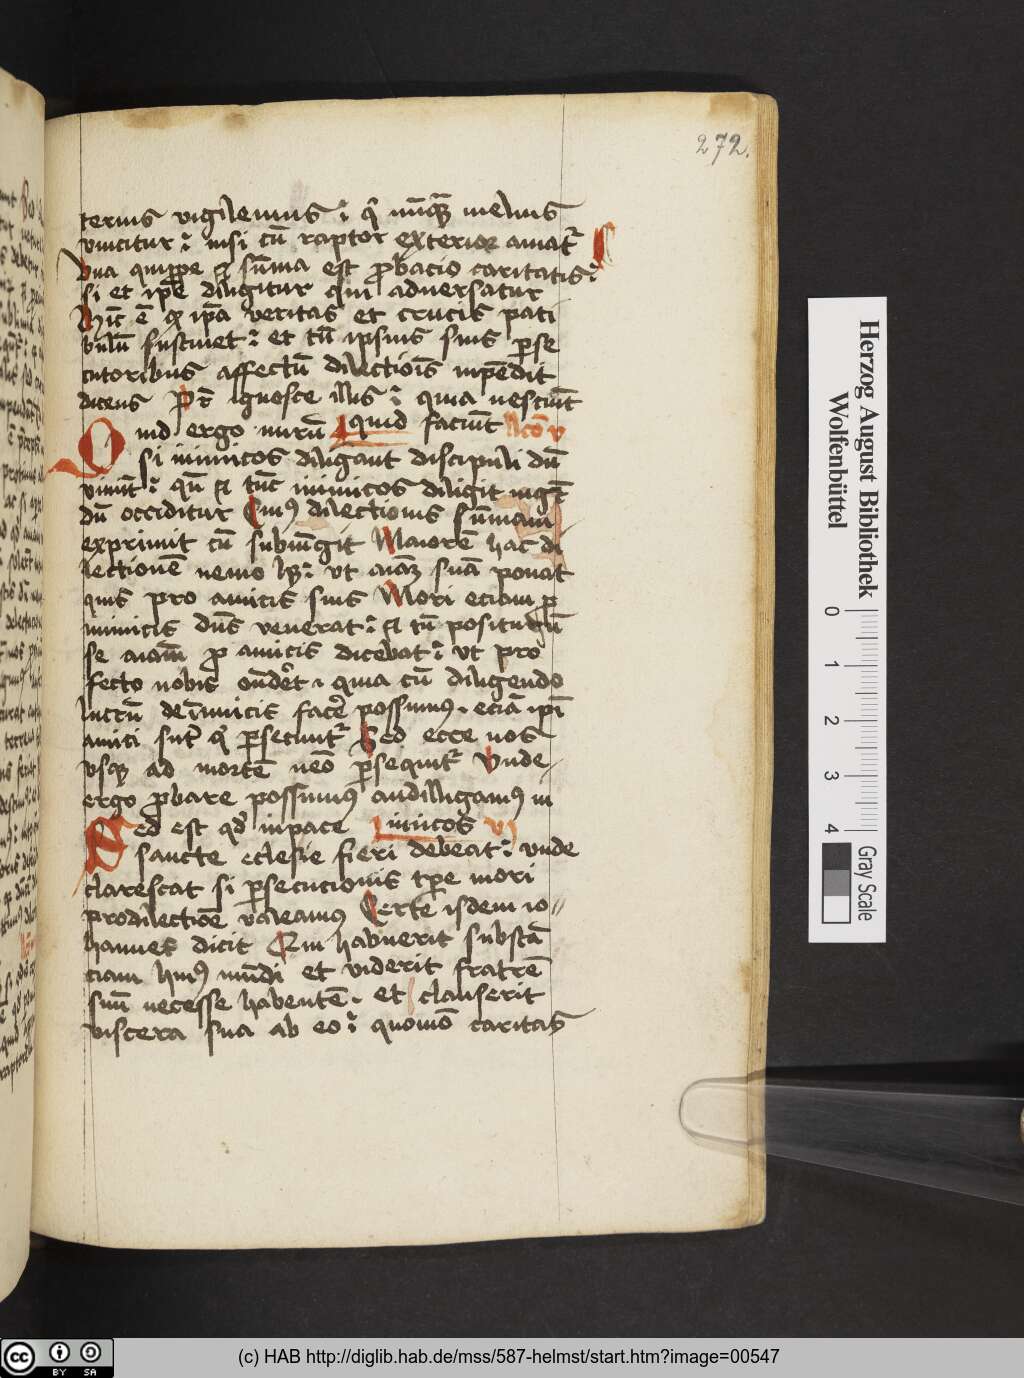 272.
terius vigilemus : q̄ nūq̄ melius
vincitur : nisi cū raptor exterior amat᷒
Vna quippe ⁊ sūma est ꝓbacio caritatis :
si et ip̄e diligitur qui aduersatur
Hīc ē ꝙ ip̄a veritas et crucis pati
bulū sustinet : et tn̄ ipsius suis ꝑse
cutoribus affectū dilectiōis inpēdit
dicens Pr̄ ignosce illis : quia nesciūt
Quid ergo mirū quid faciūt lcō v
si inimicos diligāut discipuli dū
viuūt : qn̄ ⁊ tūc inimicos diligit mgr̄
dū occiditur Cuiꝰ dilectionis sūmam
exprimit cū subiūgit Maiorē hac di
lectionē nemo hꝫ : vt aīaꝫ suā ponat
quis pro amicis suis Mori eciam ꝓ
inimicis dūs venerat : ⁊ tn̄ positurū
se aīam ꝓ amicis dicebat : vt pro
fecto nobis ōnderet : quia cū diligendo
lucrū de inimicis facere possumus . eciā ipī
amici sūt qͥ ꝑsecunt᷒ Sed ecce nos
vsqꝫ ad mortē nēo ꝑsequit᷒ Vnde
ergo ꝓbare possumꝰ an diligamꝰ in
Sed est qd̄ in pace imicos vi
sancte eclesie fieri debeat : vnde
clarescat si ꝑsecucionis tꝑe mori
pro dilectiōe valeamꝰ Certe isdem io
hannes dicit Qui habuerit substā
ciam huiꝰ mūdi et viderit fratrē
suū necesse habentē . et clauserit
viscera sua ab eo : quomō caritas
Herzog August Bibliothek
Wolfenbüttel
0 1 2 3 4
Gray Scale
cc BY SA
(c) HAB http://diglib.hab.de/mss/587-helmst/start.htm?image=00547